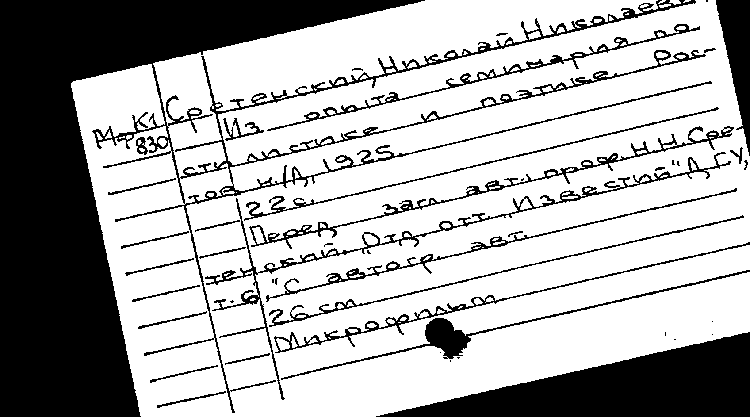 Сретенский, Николай Николаеви
МфК1
830
Из опыта семинария по
стилистике и поэтике. Рос-
тов н/Д, 1925.
22с.
Перед загл. авт.: проф. Н.Н. Сре-
тенский. "Отд. отт. "Известий" ДГУ,
т. 6," С автогр. авт.
26 см.
Микрофильм